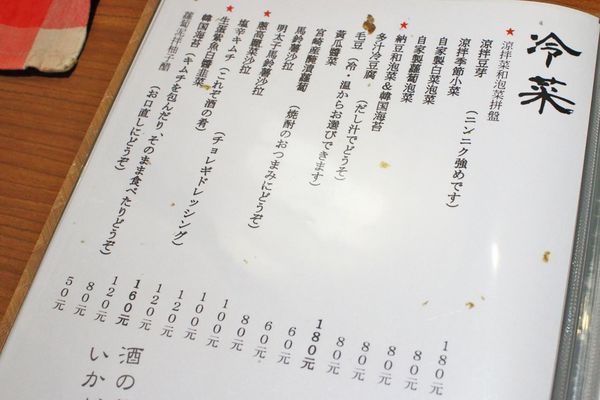 冷菜
★涼拌菜和泡菜拼盤 180元
涼拌豆芽 80元
涼拌季節小菜（ニンニク強めです） 80元
自家製白菜泡菜 80元
自家製蘿蔔泡菜 80元
★納豆和泡菜&韓国海苔 180元
多汁冷豆腐（だし汁でどうぞ） 60元
毛豆（冷・温からお選びできます） 60元
黃瓜醬菜 80元
宮崎産醃漬蘿蔔（焼酎のおつまみにどうぞ） 100元
馬鈴薯沙拉 100元
明太子馬鈴薯沙拉 120元
★蔥高麗菜沙拉（チョレギドレッシング） 120元
塩辛キムチ（これぞ酒の肴） 160元
★生蛋紫魚白醬韭菜 120元
韓国海苔（キムチを包んだり、そのまま食べたりどうぞ） 80元
蘿蔔泥拌柚子醋（お口直しにどうぞ） 50元
酒の
いか